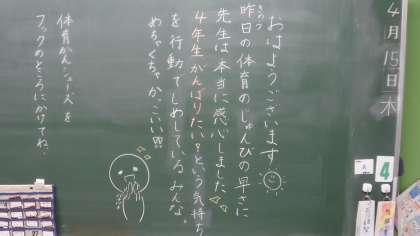 4月15日 木
おはようございます
昨日の体育のじゅんびの早さに
きのう
先生は本当に感心しました
4年生がんばりたい?という気持ち
を行動でしめしているみんな。
めちゃくちゃかっこいい!!!
体育かんシューズを
フックのところにかけてね。
4